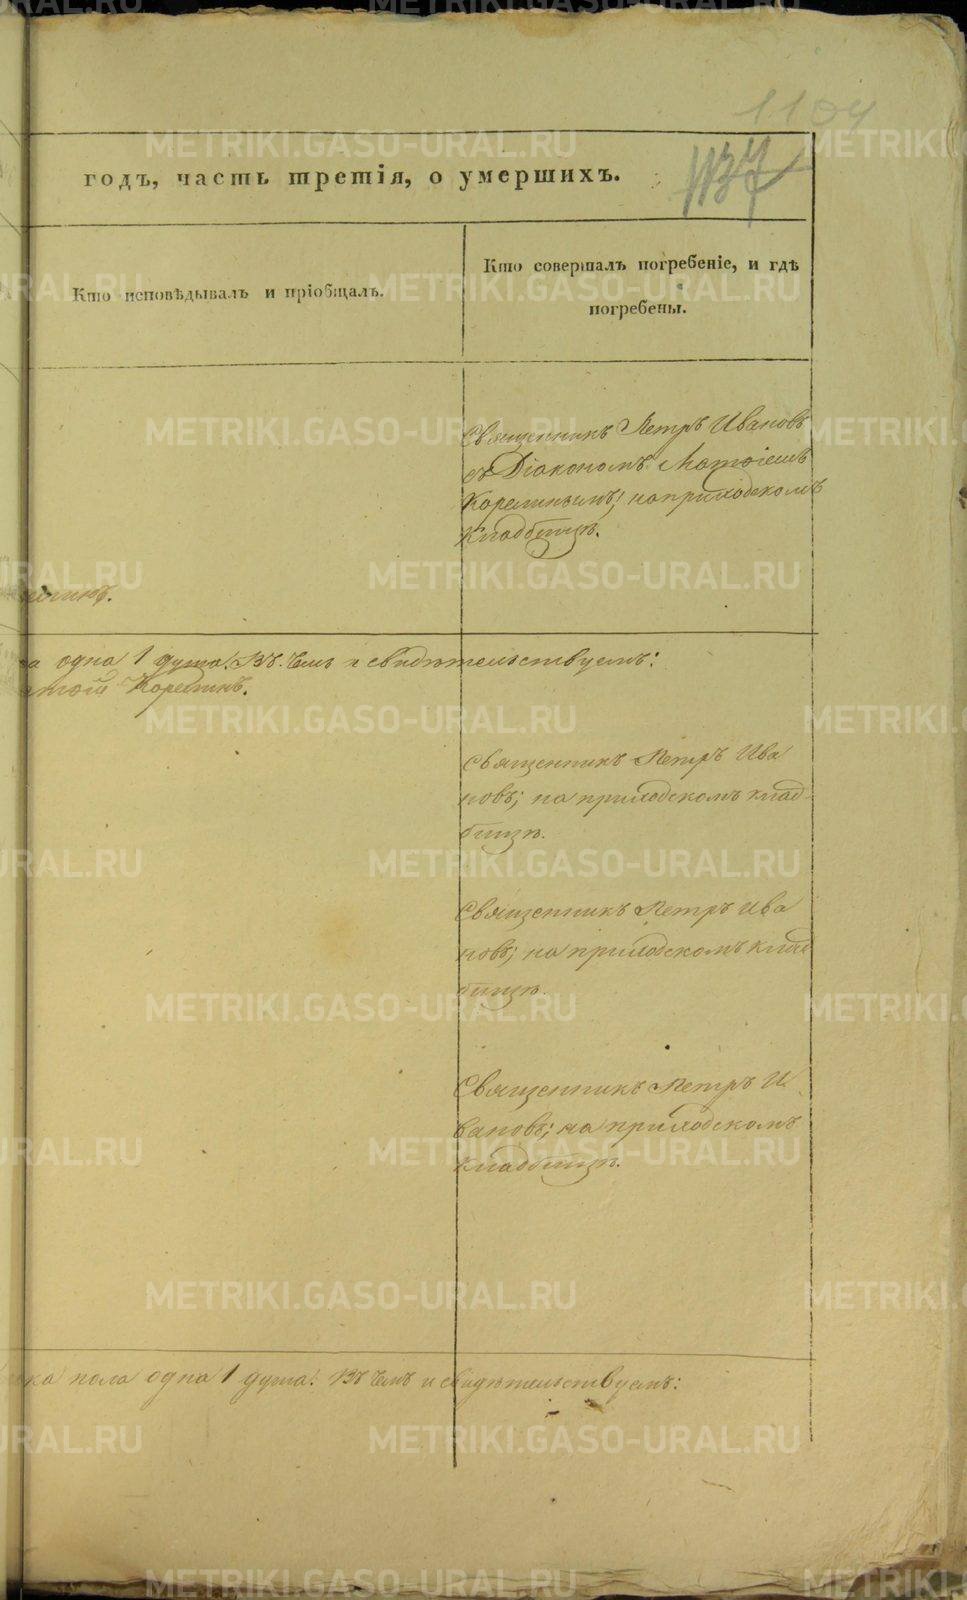 1104
1137
годъ, часть третія, о умершихъ.
Кто исповѣдывалъ и пріобщалъ.
Кто совершалъ погребеніе, и гдѣ
погребены.
Священникъ Петръ Ивановъ
съ Діакономъ
на приходскомъ
кладбищѣ.
одна 1 душа. Въ чемъ и свидѣтельствуемъ:
Священникъ Петръ Ива
новъ; на приходскомъ клад-
бищѣ.
Священникъ Петръ Ива
новъ; на приходскомъ клад
бищѣ.
Священникъ Петръ И
вановъ; на приходскомъ
кладбищѣ.
ка пола одна 1 душа. Въ чемъ и свидѣтельствуемъ:
METRIKI.GASO-URAL.RU